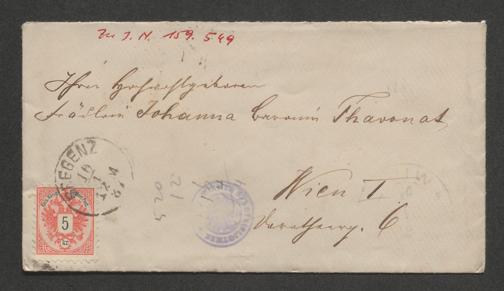 Zu I. N. 159.549
Ihrer Hochwohlgeboren
Fräulein Johanna Baronin Thavonat
Wien I.
Dorotheerg. 6
BREGENZ
5